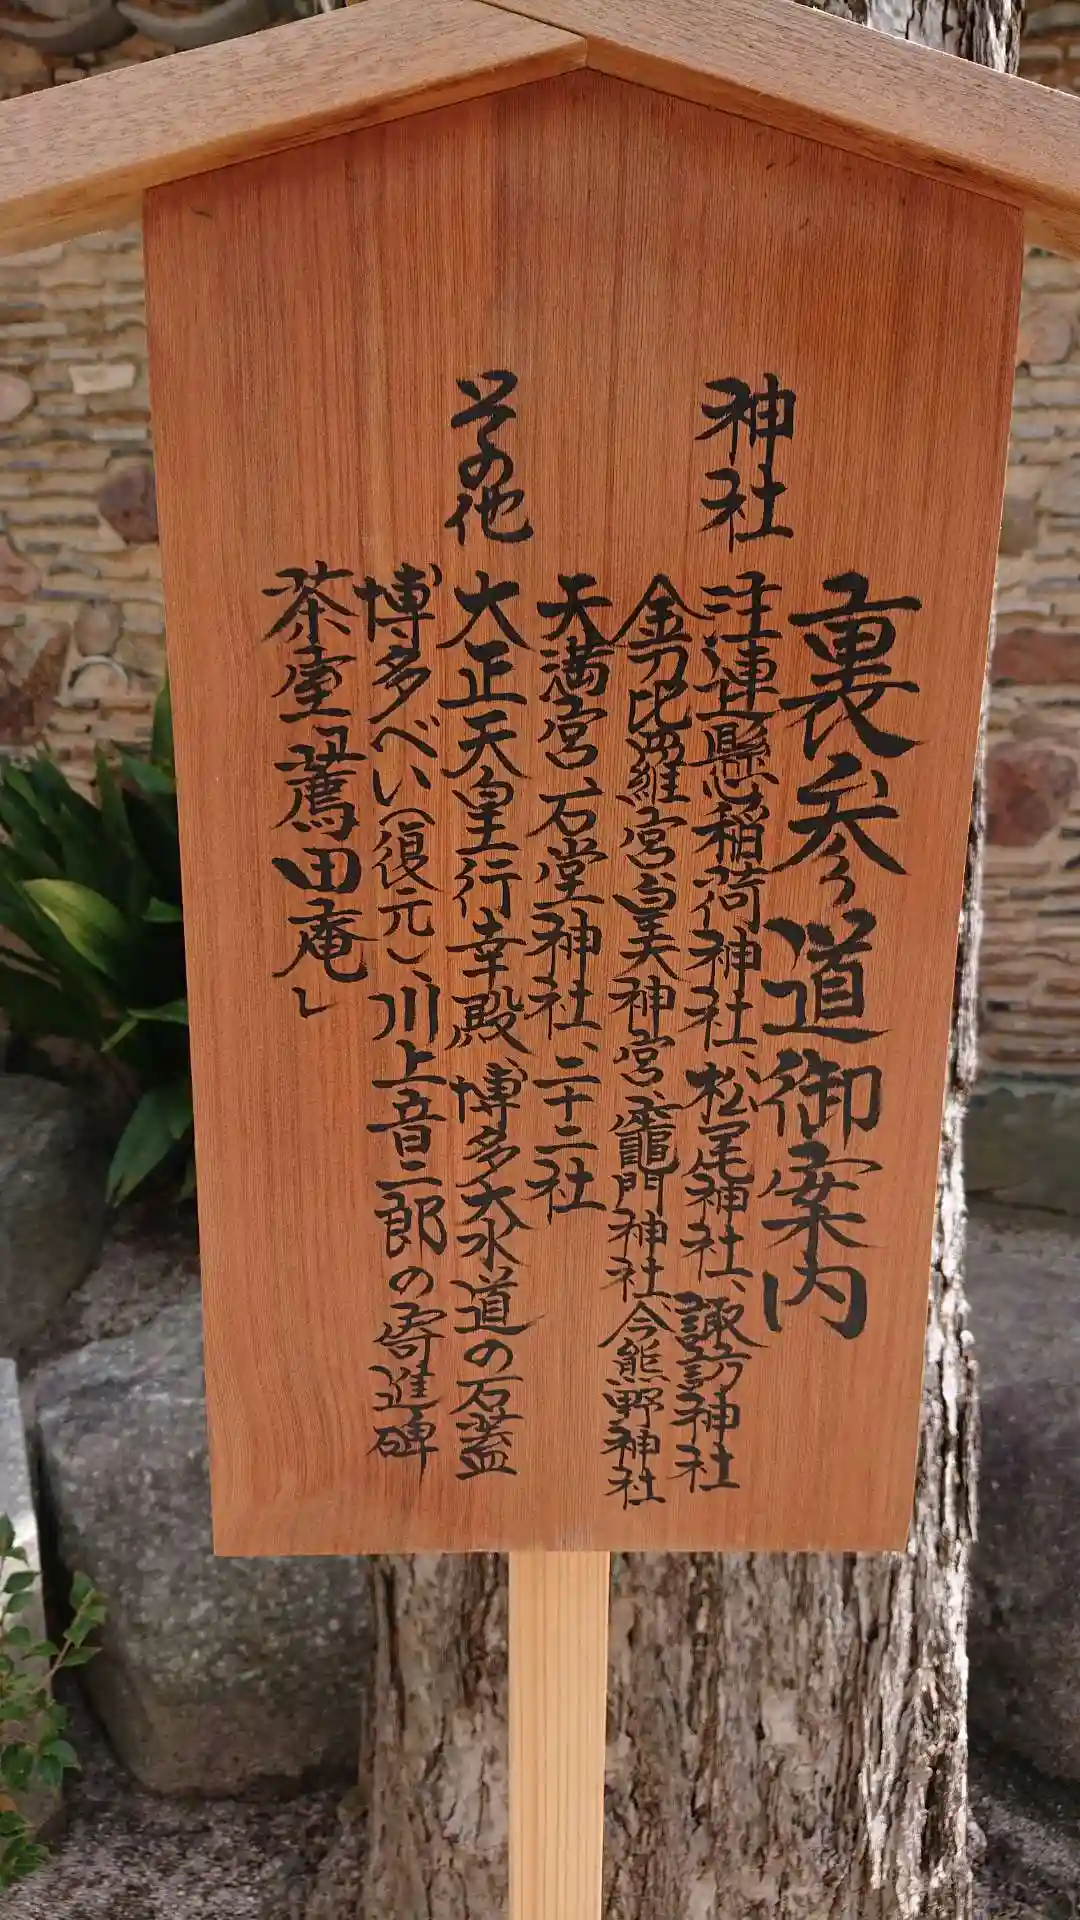 裏参道御案内
神社
注連懸稲荷神社、松尾神社、諏訪神社
金刀比羅宮、皇美神宮、竈門神社、今熊野神社
天満宮、石堂神社、二十二社
その他
大正天皇行幸殿、博多大水道の石蓋
博多べい(復元)、川上音二郎の寄進碑
茶室「鷹田庵」